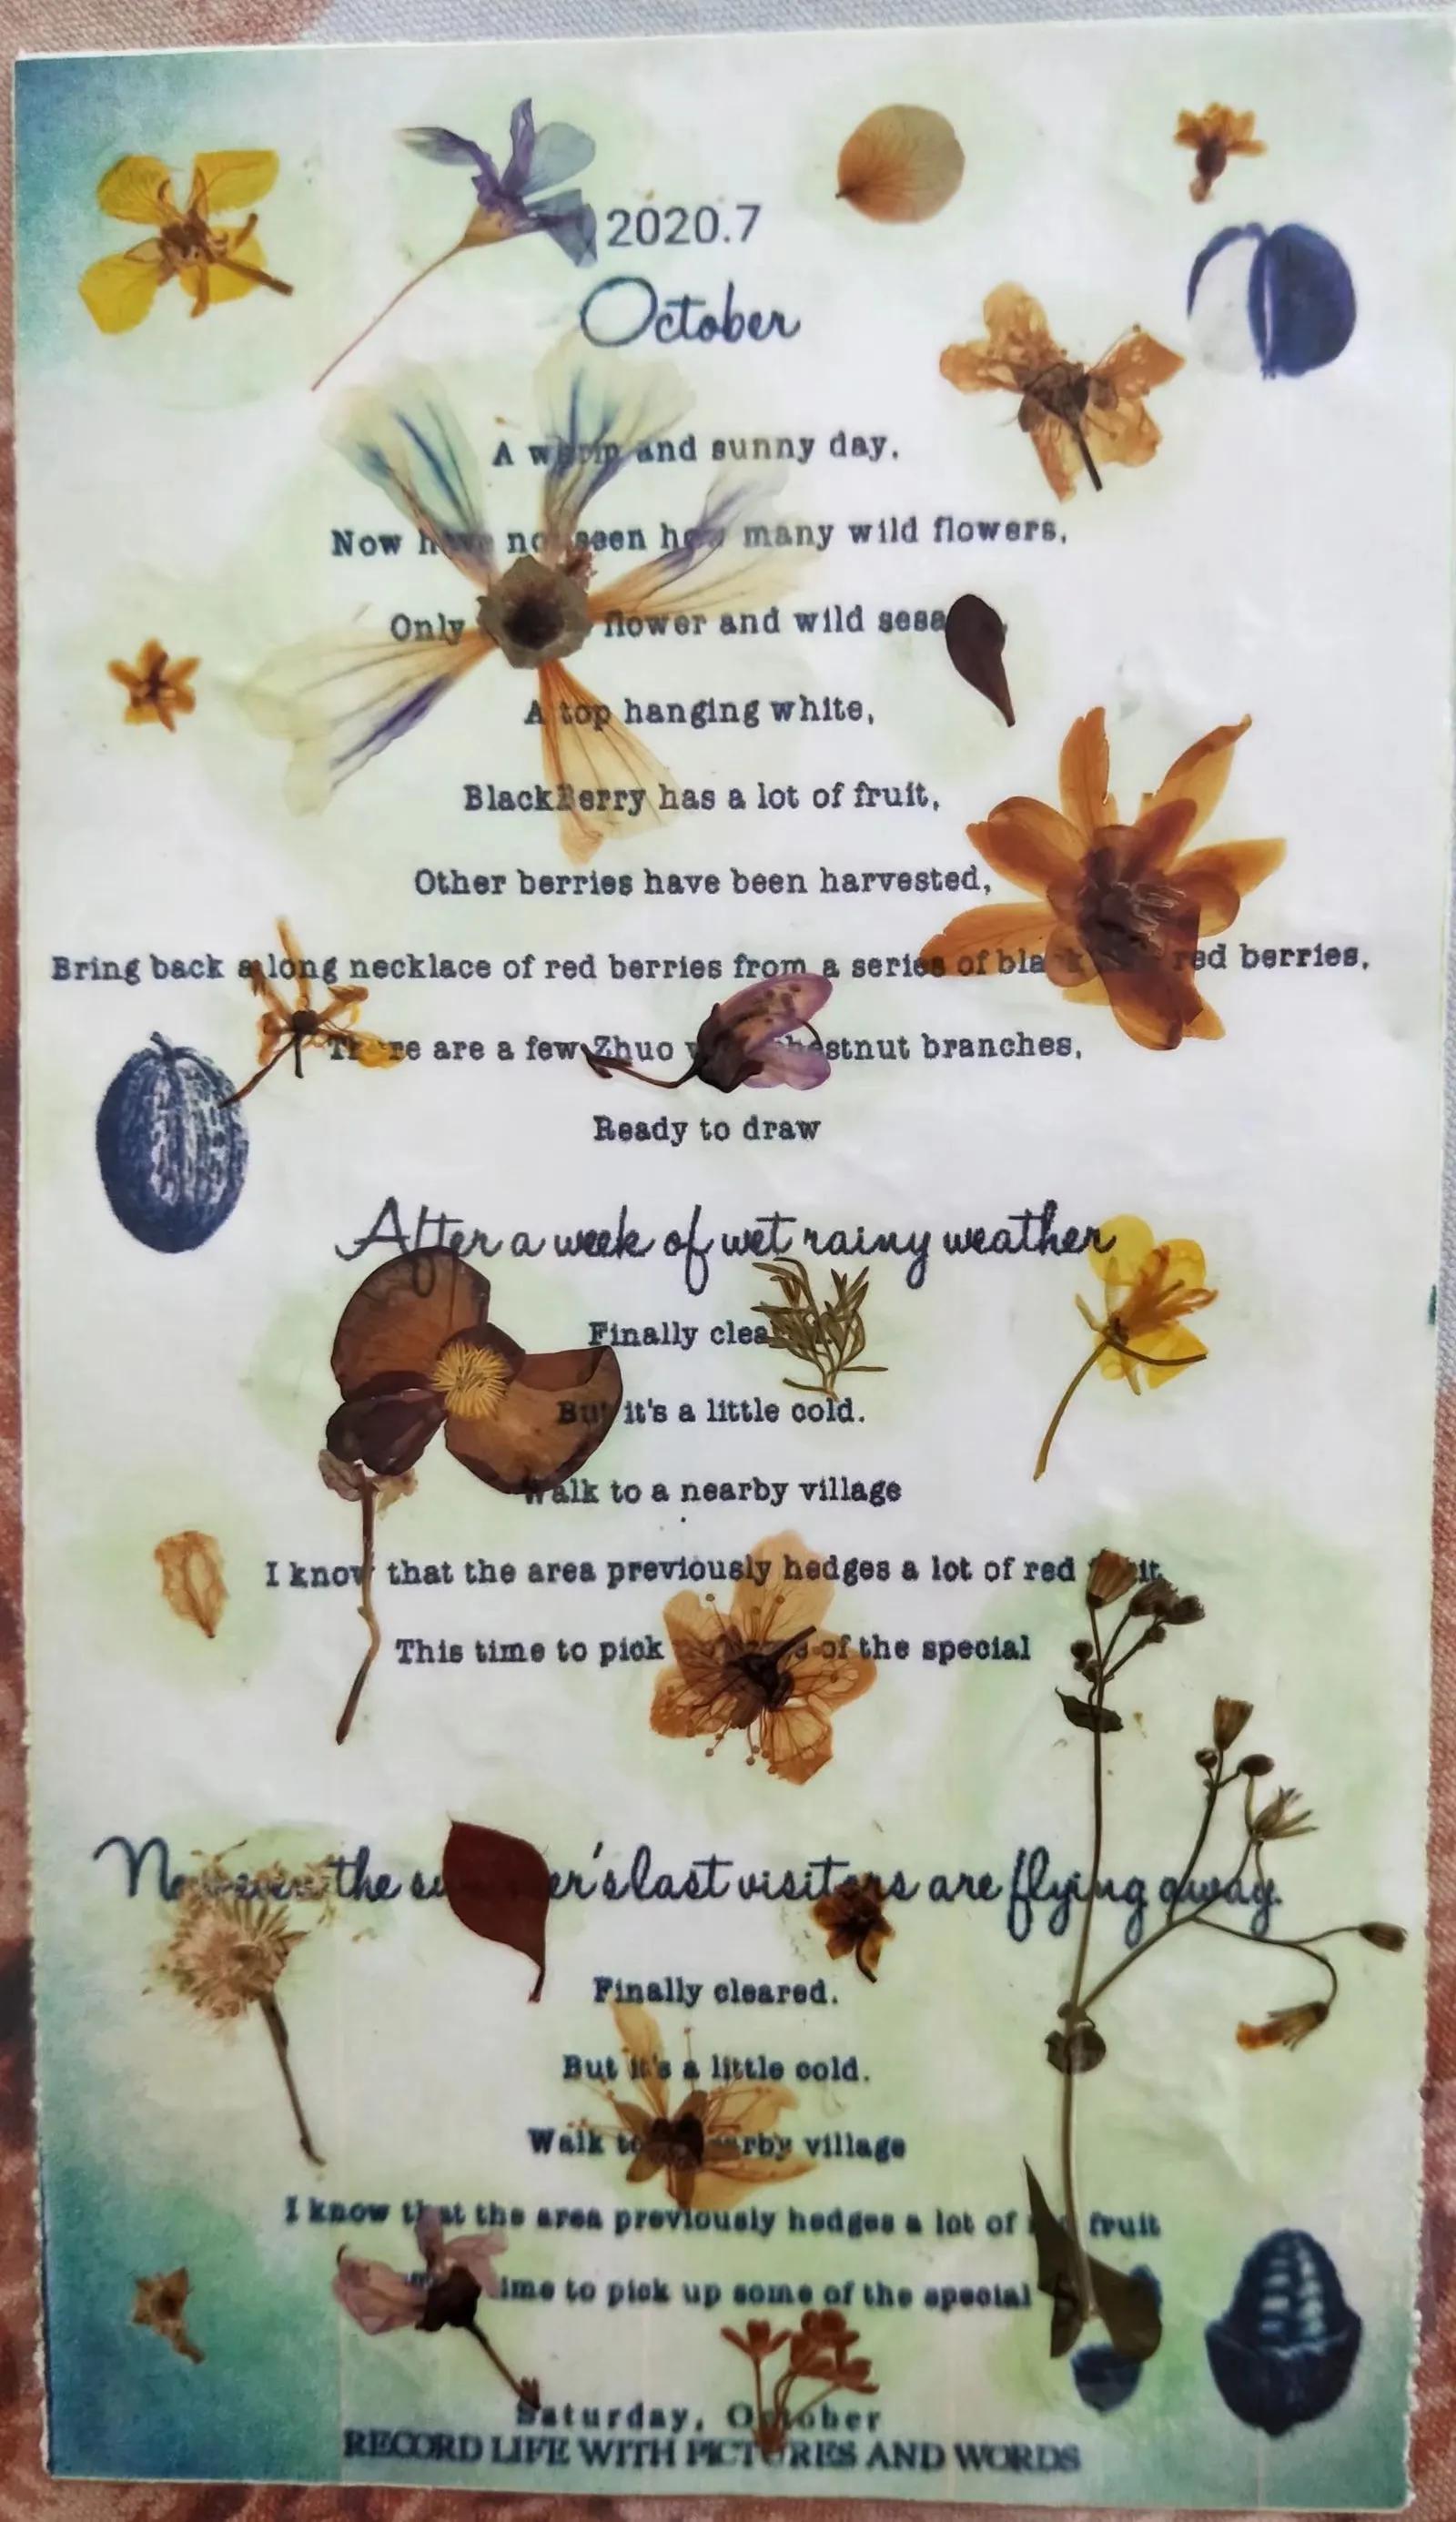 2020.7
October
A warm and sunny day,
Now have not seen how many wild flowers,
Only flower and wild
A top hanging white,
BlackBerry has a lot of fruit,
Other berries have been harvested,
Bring back a long necklace of red berries from a series of black red berries,
There are a few Zhuo chestnut branches,
Ready to draw
After a week of wet rainy weather
Finally
But it's a little cold.
Walk to a nearby village
I know that the area previously hedges a lot of red fruit
This time to pick of the special
the summer's last visitors are flying away.
Finally cleared.
But it's a little cold.
Walk to nearby village
I know that the area previously hedges a lot of fruit
time to pick up some of the special
Saturday, October
RECORD LIFE WITH PICTURES AND WORDS